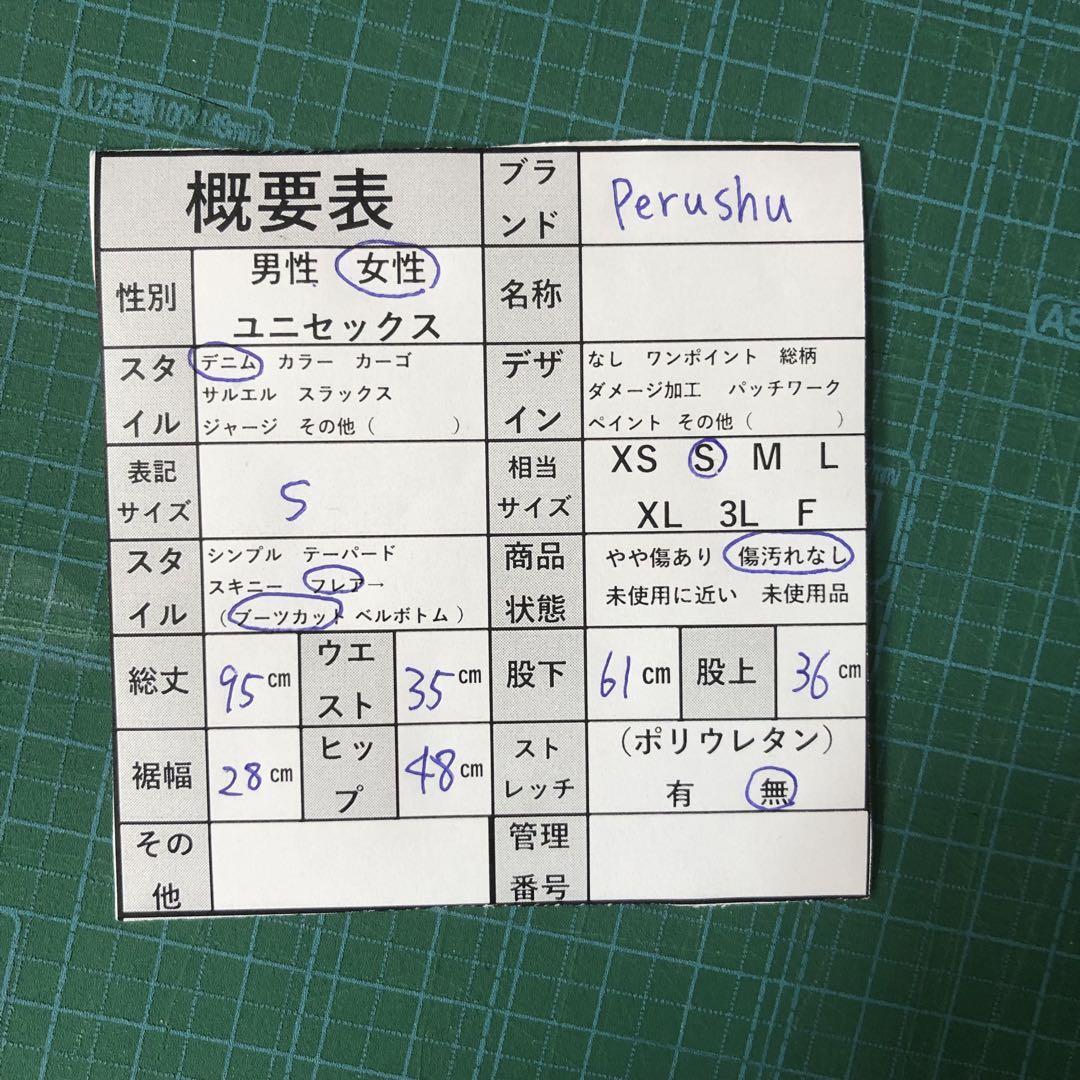 ハガキ判(100×148mm)
A5
概要表
ブランド
Perushu
性別
男性 女性
ユニセックス
名称
スタイル
デニム カラー カーゴ
サルエル スラックス
ジャージ その他（ ）
デザイン
なし ワンポイント 総柄
ダメージ加工 パッチワーク
ペイント その他（ ）
表記
サイズ
S
相当
サイズ
XS S M L
XL 3L F
スタイル
シンプル テーパード
スキニー フレア→
（ブーツカット ベルボトム）
商品
状態
やや傷あり 傷汚れなし
未使用に近い 未使用品
総丈
95cm
ウエスト
35cm
股下
61cm
股上
36cm
裾幅
28cm
ヒップ
48cm
ストレッチ
（ポリウレタン）
有 無
その他
管理
番号